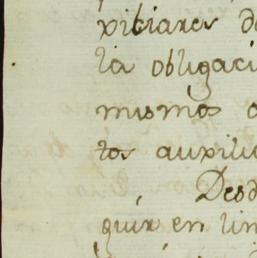 xiliares d
la obligaci
mismos a
tos auxili
Desd
guir en lin